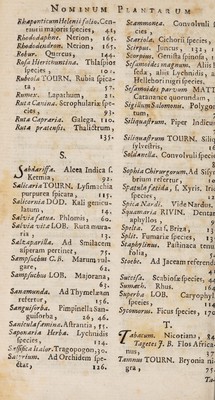 NOMINUM PLANTARUM
Rhaponticum Helenii folio. Centaurii majoris species, 41,
Rhododaphne. Nerion, 165.
Rhododendron. Nerion, 165.
Robur. Quercus, 144.
Rosa Hierichuntina. Thlaspios species, 107.
Rubeola TOURN. Rubia spicata, 57.
Rumex. Lapathum,
Ruta Canina. Scrophulariæ species, 93.
Ruta Capraria. Galega. 110.
Ruta pratensis. Thalictrum, 135.
S.
Sabdariffa. Alcea Indica f. Kermia, 92.
Salicaria TOURN. Lysimachia purpurea spicata,
Salicornia DOD. Kali geniculatum, 14.
Salvia fatua. Phlomis, 65.
Salvia vitæ LOB. Ruta muraria,
Salzaparilla. Ad Smilacem asperam pertinet, 75.
Sampsuchum C. B. Marum vulgare, 62.
Sampsuchus LOB. Majorana, 63.
Sanamunda. Ad Thymelæam refertur, 156.
Sanguisorba. Pimpinella Sanguisorba, 26, 46.
Sanicula fæmina. Astrantia, 51.
Saponaria Herba. Lychnidis species, 114.
Sassifica Italor. Tragopogon, 30.
Satyrium. Ad Orchidem spectat, 126.
Scammonea. Convolvuli species,
Scariola. Cichorii species,
Scirpus. Juncus, 132,
Scorpius. Genista spinosa,
Sesamoides magnum. Aliis Reseda, aliis Lychnidis
Hellebori nigri species.
Sesamoides parvum MATTH. Catanance quorundam,
Sigillum Salomonis. Polygonatum,
Siliquastrum. Piper Indicum,
Siliquastrum TOURN. Siliqua sylvestris,
Soldanella. Convolvuli species
Sophia Chirurgorum. Ad Sisymbrium refertur,
Spatula fœtida, s. Xyris. Iridis species,
Spica Nardi. Vide Nardus.
Squamaria RIVIN. Dentaria aphyllos,
Spelta. Zea s. Briza,
Split. Fumariæ species,
Staphylinus. Pastinaca tenuifolia,
Stoebe. Ad Jaceam referendum
Succisa. Scabiosæ species, 44
Sumach. Rhus. 164
Superba LOB. Caryophylli species,
Sycomorus. Ficus species, 170
T.
Tabacum. Nicotiana, 34
Tagetes J. B. Flos Africanus,
Tamnus TOURN. Bryonia nigra, 75